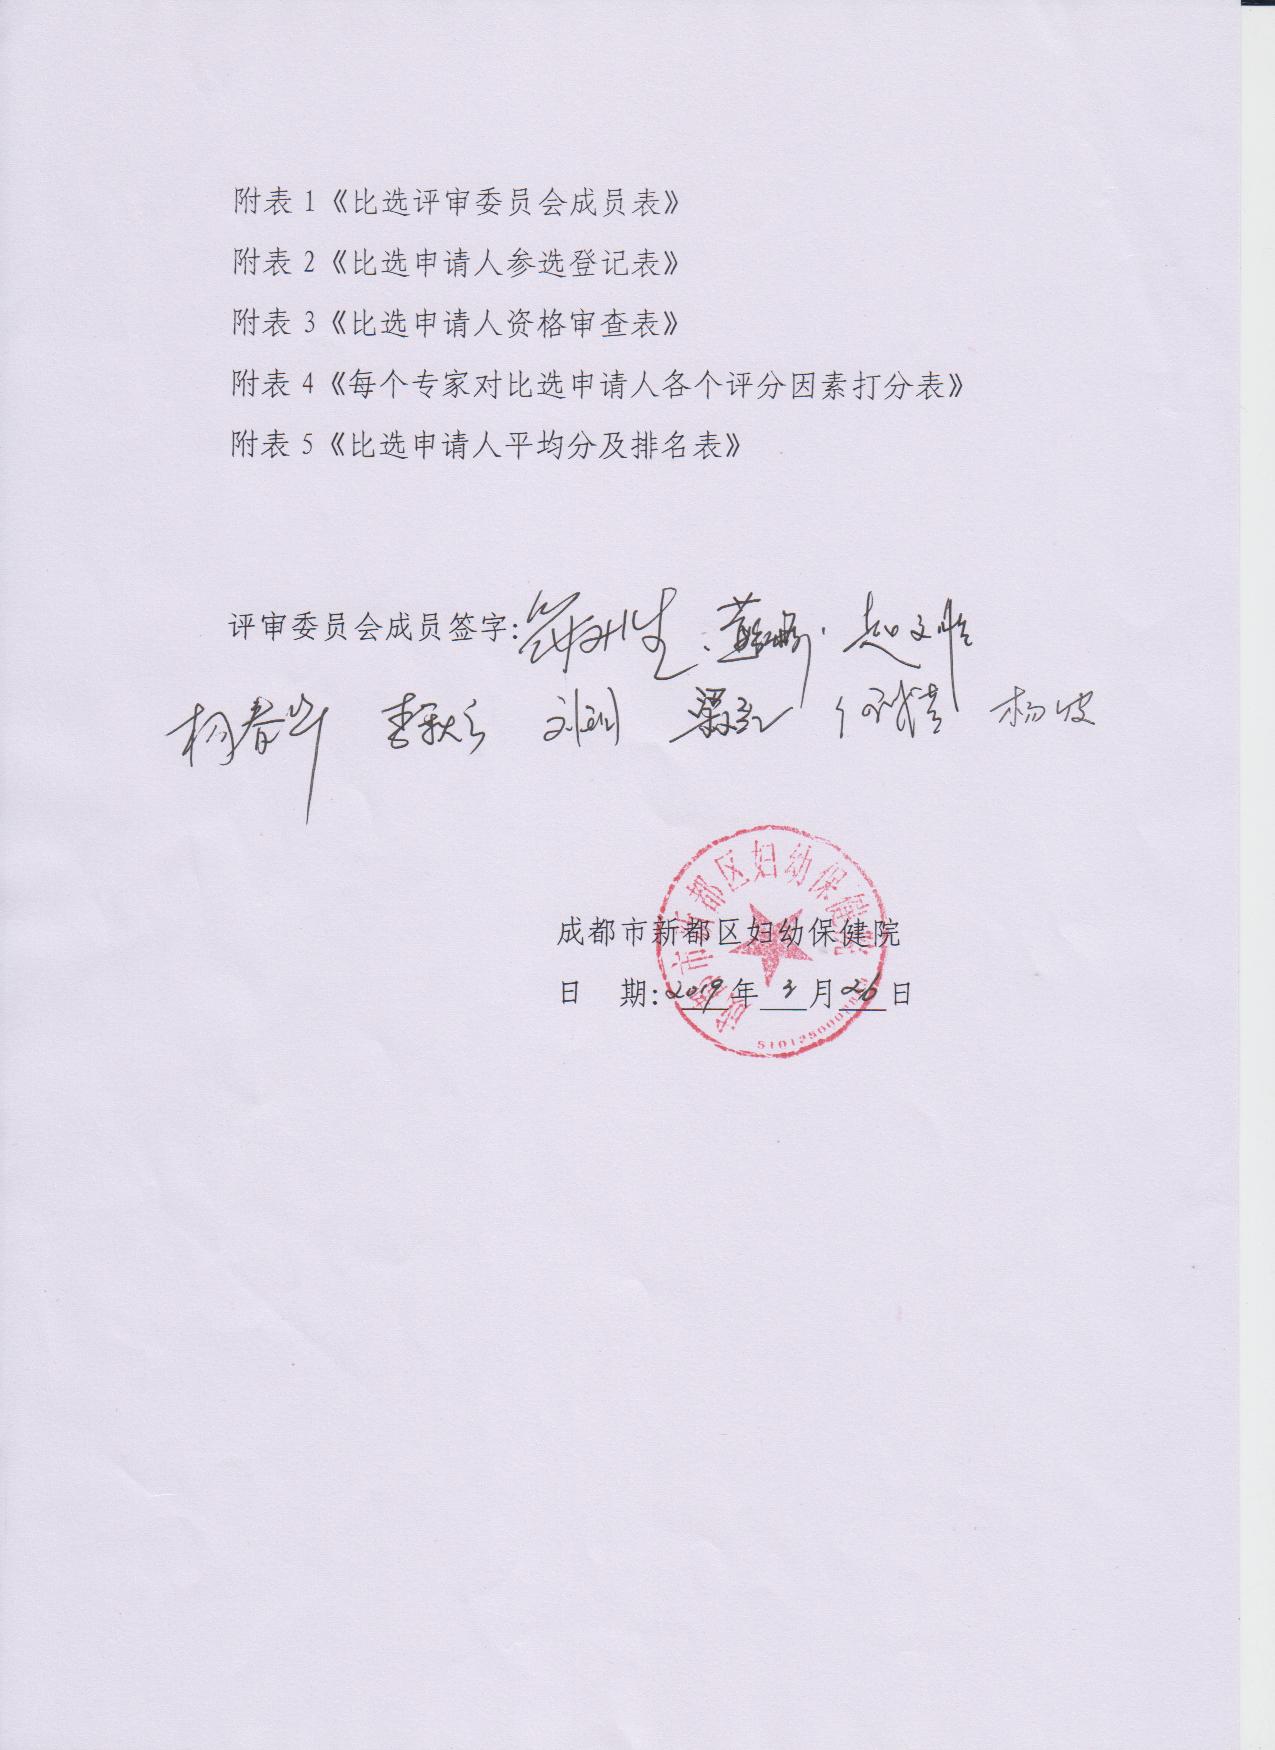 附表 1《比选评审委员会成员表》
附表 2《比选申请人参选登记表》
附表 3《比选申请人资格审查表》
附表 4《每个专家对比选申请人各个评分因素打分表》
附表 5《比选申请人平均分及排名表》
评审委员会成员签字:
杨春华 李秋 刘 梁 杨波
成都市新都区妇幼保健院
成都市新都区妇幼保健院
日 期: 2019 年 3 月 26 日